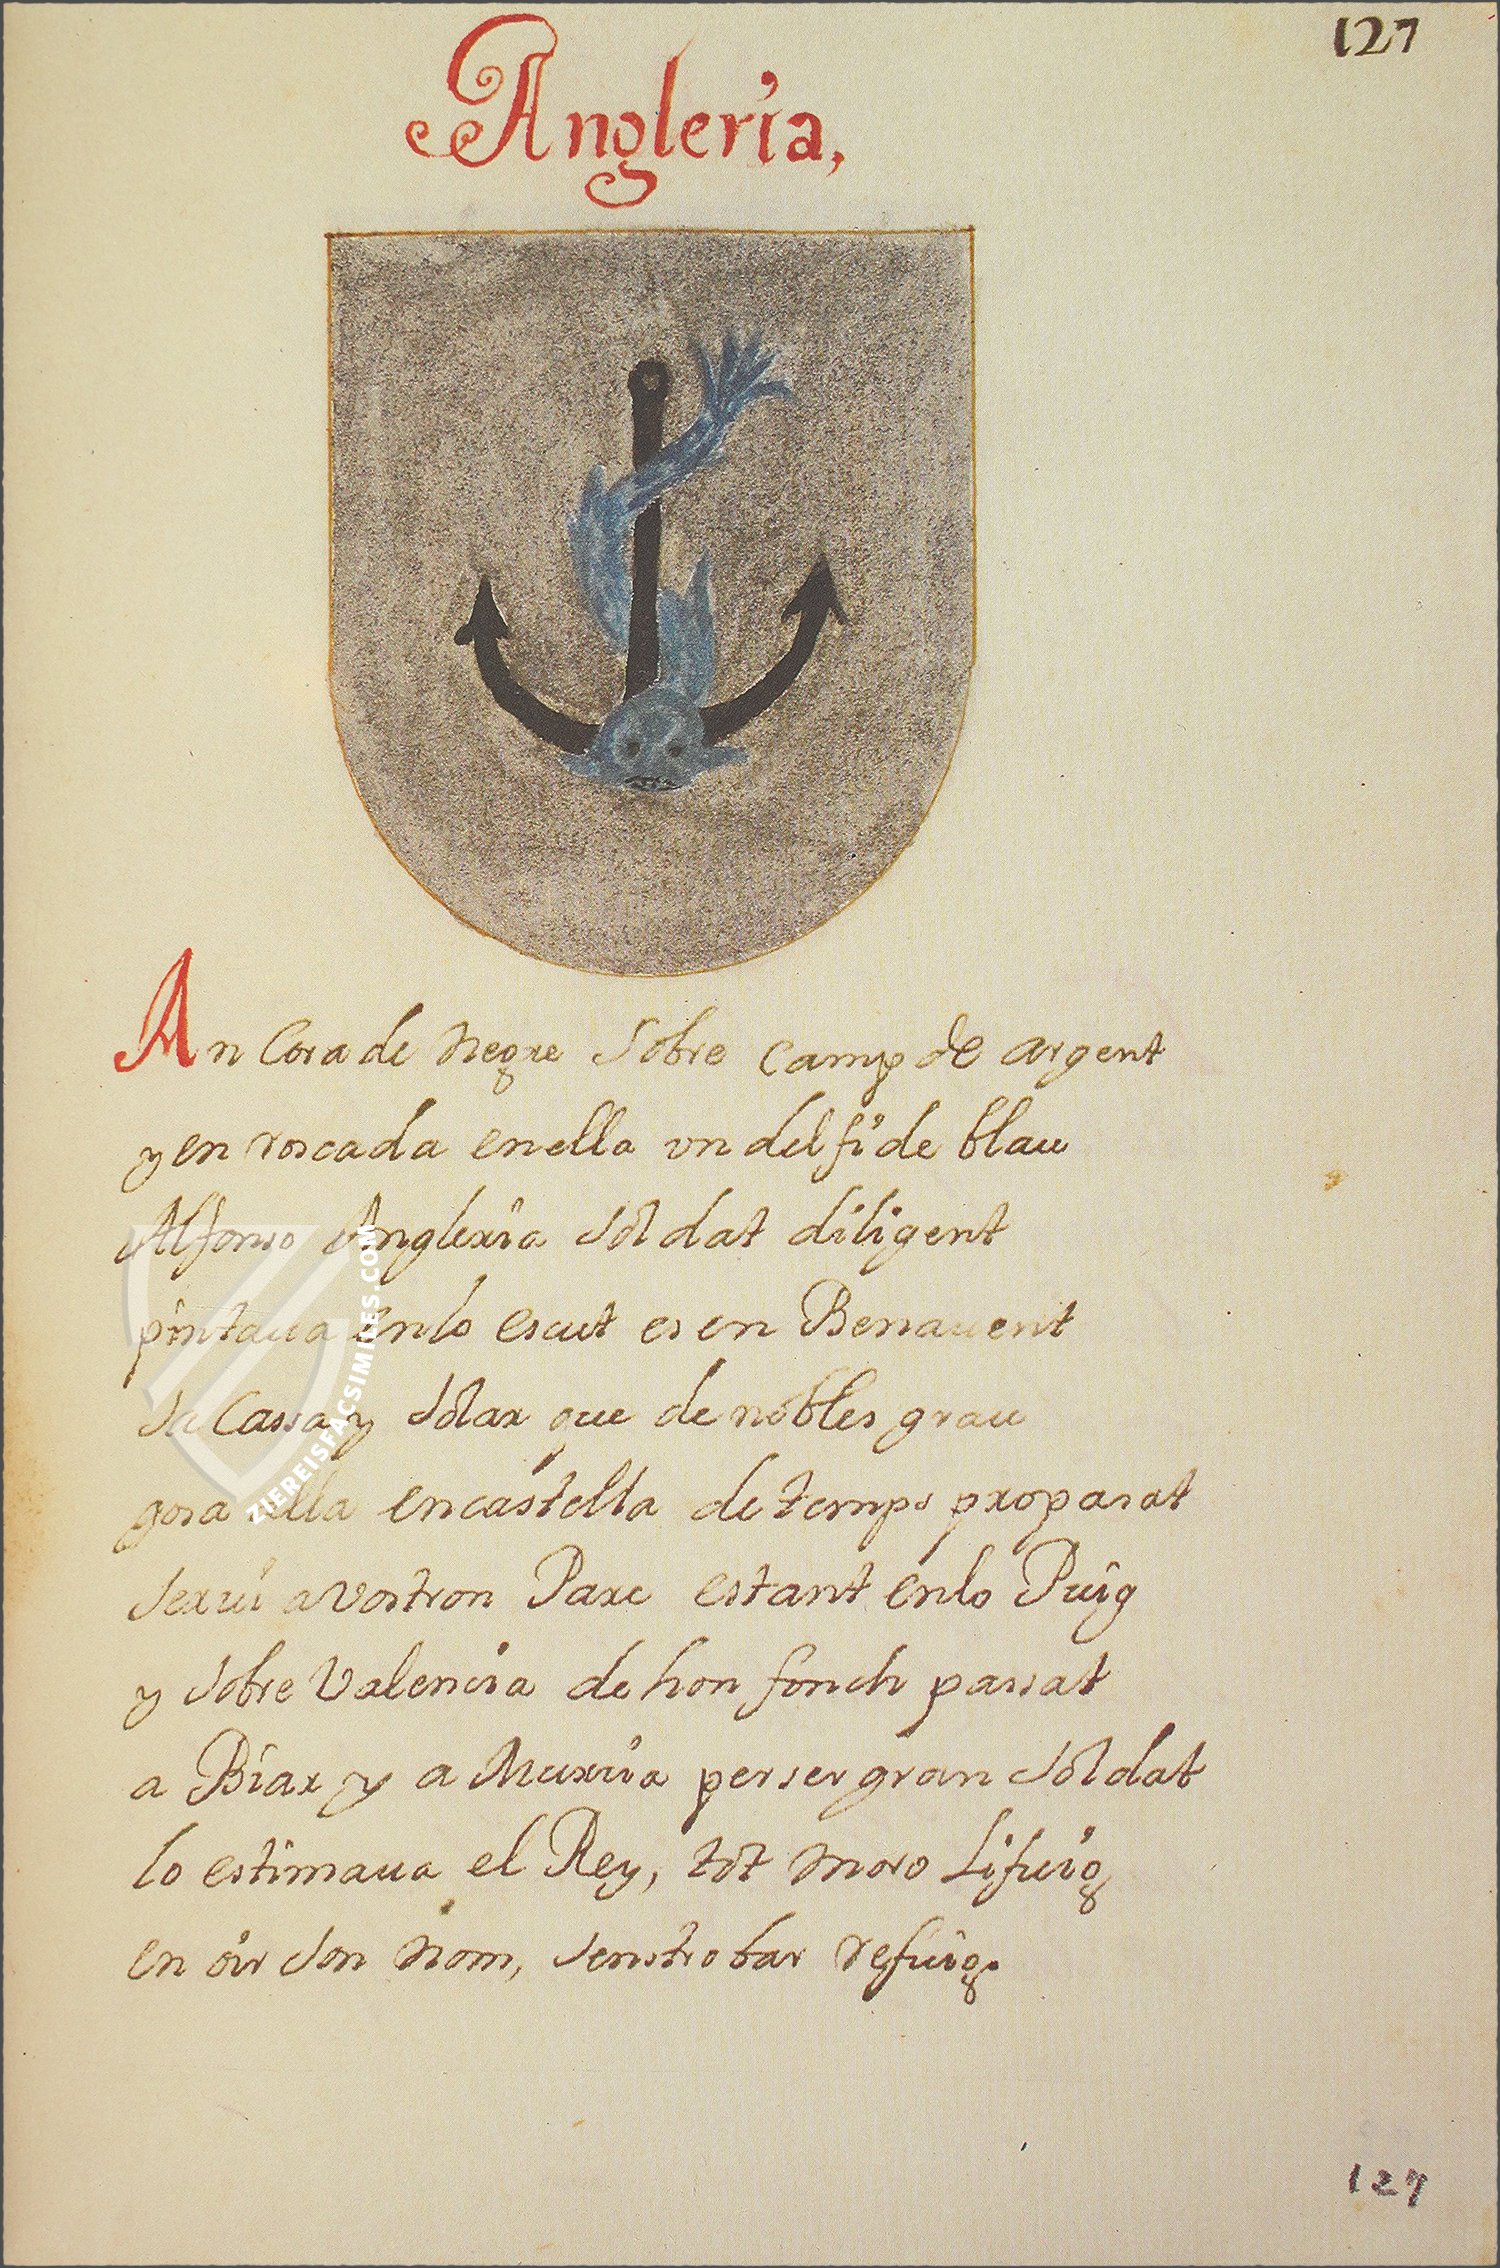 127
Anglería,
An Cora de negre sobre camp de argent
y en roscada en ella vn delfi de blau
Alfonso Anglería soldat diligent
pintaua en lo escut es en Benauent
sa Cassa y solar que de nobles grau
gosa ella en castella de temps proparat
serui a vostron Pare estant en lo Puig
y sobre Valencia de hon fonch passat
a Biar y a Murcia per ser gran soldat
lo estimaua el Rey, tot moro Lifuig
en oir son nom, sens trobar refuig.
127
ZIEREISFACSIMILES.COM